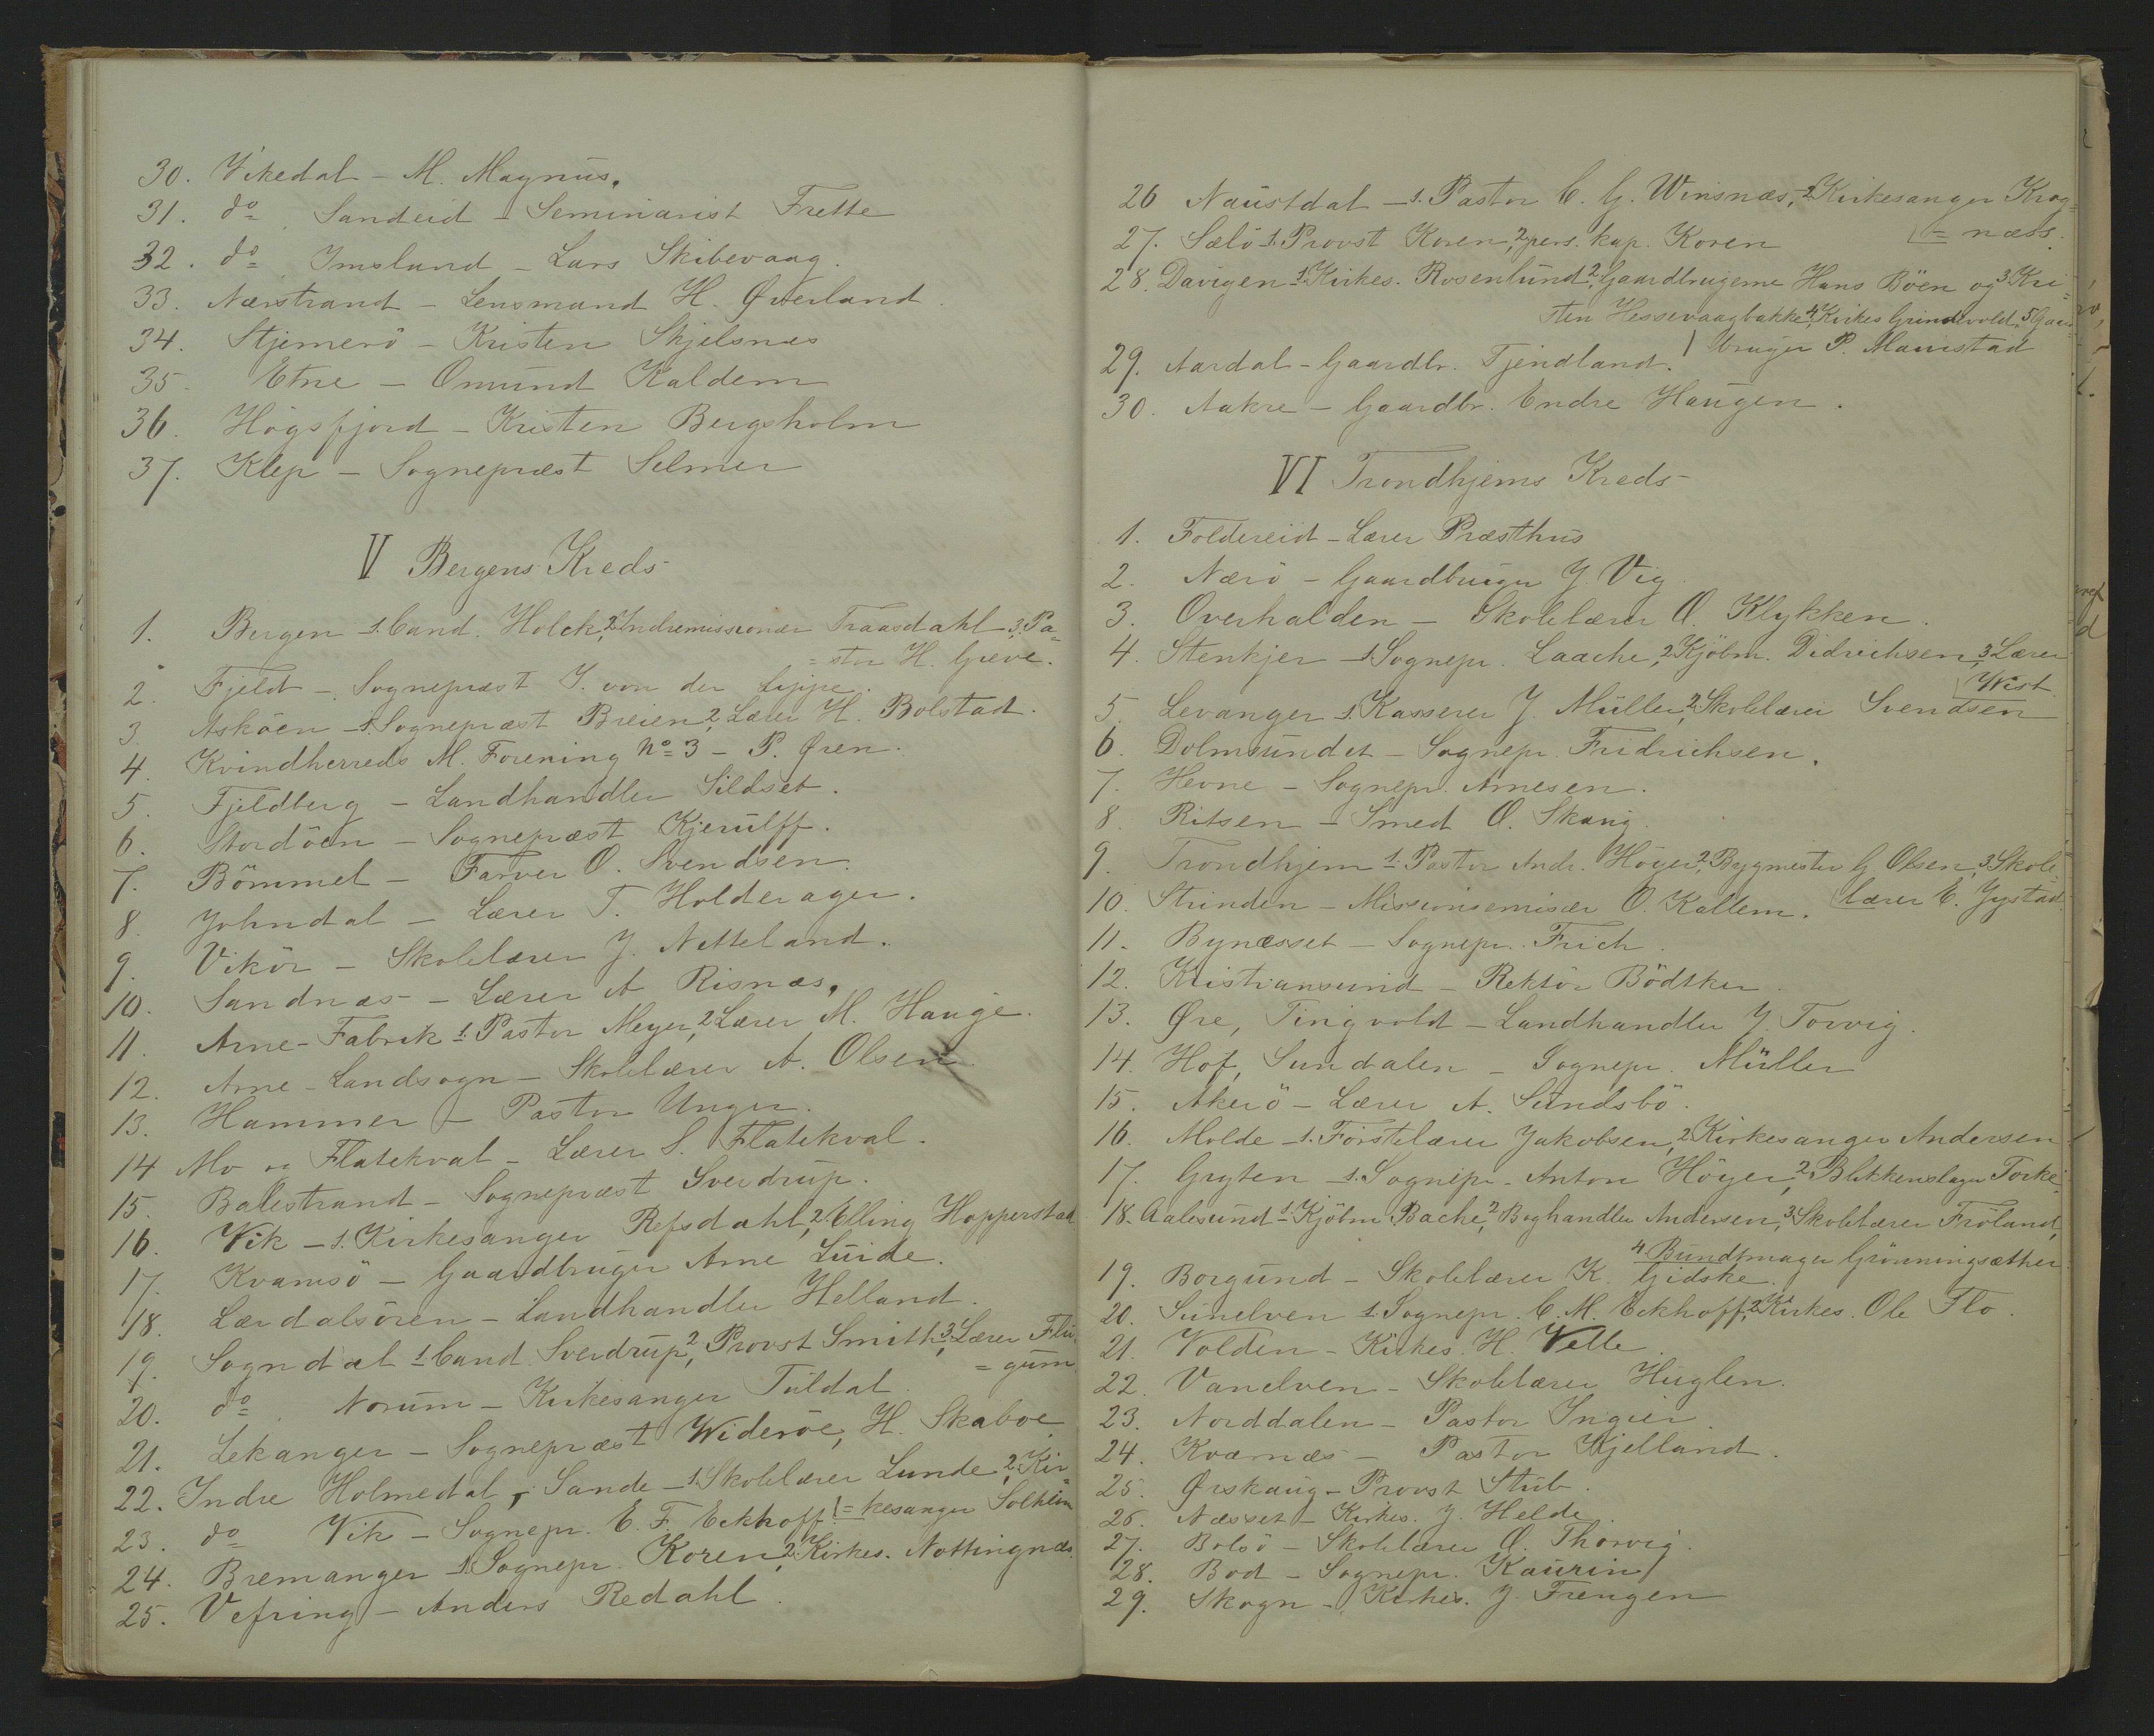 30. Vikedal - M. Magnus.
31. do Sandeid - Seminarist Frette
32. do Imsland - Lars Skibevaag.
33. Nærstrand - Lensmand H. Øverland.
34. Stjernerö - Kristen Skjelsnes
35. Etne - Omund Kaldem
36. Högsfjord - Kristen Bergsholm
37. Klep - Sognepræst Selmer
V Bergens Kreds
1. Bergen 1. Cand. Holck, 2. Indremissionær Traasdahl, 3. Pa=
=stor H. Greve.
2. Fjeld - Sognepræst J. von der Lippe.
3. Asköen - 1. Sognepræst Breien, 2. Lærer H. Bolstad.
4. Kvindherreds M. Forening No 3 - P. Øren.
5. Fjeldberg - Landhandler Sildset.
6. Stordöen - Sognepræst Kjerulff.
7. Bömmel - Farver O. Svendsen.
8. Johndal - Lærer T. Holderager.
9. Vikör - Skolelærer J. Netteland.
10. Sandnæs - Lærer A Risnæs.
11. Arne-Fabrik 1. Pastor Meyer, 2. Lærer M. Hauge.
12. Arne-Landsogn - Skolelærer A. Olsen
13. Hammer - Pastor Unger.
14 Mo og Flatekval - Lærer S. Flatekval.
15. Balestrand - Sognepræst Sverdrup.
16. Vik - 1. Kirkesanger Refsdahl, 2. Elling Hopperstad
17. Kvamsö - Gaardbruger Arne Luide.
18. Lærdalsören - Landhandler Helland.
19. Sogndal 1. Cand. Sverdrup, 2. Provst Smith, 3. Lærer Flu=
=gum.
20. do Norum - Kirkesanger Tuldal.
21. Lekanger - Sognepræst Wideröe, H. Skaboe
22. Indre Holmedal, Sande - 1. Skolelærer Lunde, 2. Kir=
=kesanger Solheim
23. do Vik - Sognepr. E. F. Eckhoff
24. Bremanger 1. Sognepr. Koren, 2. Kirkes. Nottingnæs.
25. Vefring - Anders Redahl.
26 Naustdal - 1. Pastor C. G. Winsnæs, 2. Kirkesanger Krog=
=næss.
27. Sælö 1. Provst Koren, 2. pers. kap. Koren
28. Davigen 1. Kirkes. Rosenlund, 2. Gaardbrugerne Hans Böen og 3. Kri=
sten Hessevaagbakke, 4. Kirkes Grindvold, 5. Gaard=
bruger P. Maurstad
29. Aardal - Gaardbr. Tjendland.
30. Aakre - Gaardbr. Endre Haugen.
VI Trondhjems Kreds -
1. Foldereid - Lærer Præsthus
2. Nærö - Gaardbruger J. Vig
3. Overhalden - Skolelærer O. Klykken.
4. Stenkjer - 1. Sognepr. Laache, 2. Kjöbm. Didrichsen, 3. Lærer
Wist
5. Levanger 1. Kasserer J. Müller, 2. Skolelærer Svendsen
6. Dolmsundet - Sognepr. Fridrichsen.
7. Hevne - Sognepr. Arnesen.
8. Ritsen - Smed O. Skaug.
9. Trondhjem 1. Pastor Andr. Höyer, 2. Bygmester G. Olsen, 3. Skole=
lærer E. Jystad.
10. Strinden - Missionsemisær O. Kallem.
11. Bynæsset - Sognepr. Frich.
12. Kristiansund - Rektör Bödtker.
13. Øre, Tingvold - Landhandler J. Torvig.
14. Hof, Sundalen - Sognepr. Müller
15. Akerö - Lærer A. Sundsbö.
16. Molde - 1. Förstelærer Jakobsen, 2. Kirkesanger Andersen
17. Gryten - 1. Sognepr. Anton Höyer, 2. Blikkenslager Torke
18. Aalesund 1. Kjöbm. Bache, 2. Boghandler Andersen, 3. Skolelærer Fröland,
4. Bundtmager Grönningsæther.
19. Borgund - Skolelærer K. Gidske.
20. Sunelven 1. Sognepr. C. M. Eckhoff, 2. Kirkes. Ole Flo.
21. Volden - Kirkes. H. Velle.
22. Vanelven - Skolelærer Huglen.
23. Norddalen - Pastor Ingier
24. Kværnæs - Pastor Kjelland.
25. Ørskaug - Provst Stub.
26. Næsset - Kirkes. J. Helde.
27. Bolsö - Skolelærer O. Thorvig.
28. Bod - Sognepr. Kaurin
29. Skogn - Kirkes. J. Frengen